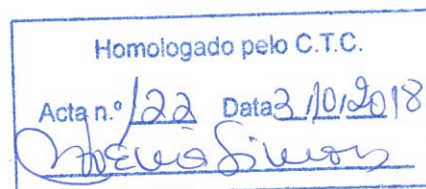 Homologado pelo C.T.C.
Acta n.º 122 Data 3/10/2018